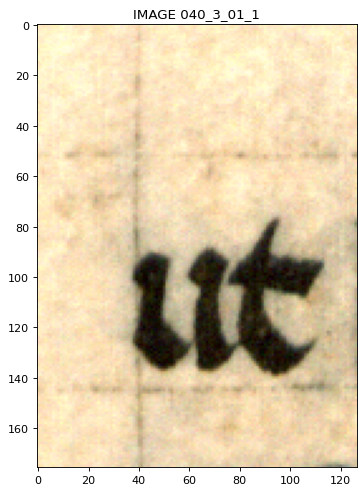 IMAGE 040_3_01_1
0
20
40
60
80
100
120
140
160
ut
0 20 40 60 80 100 120